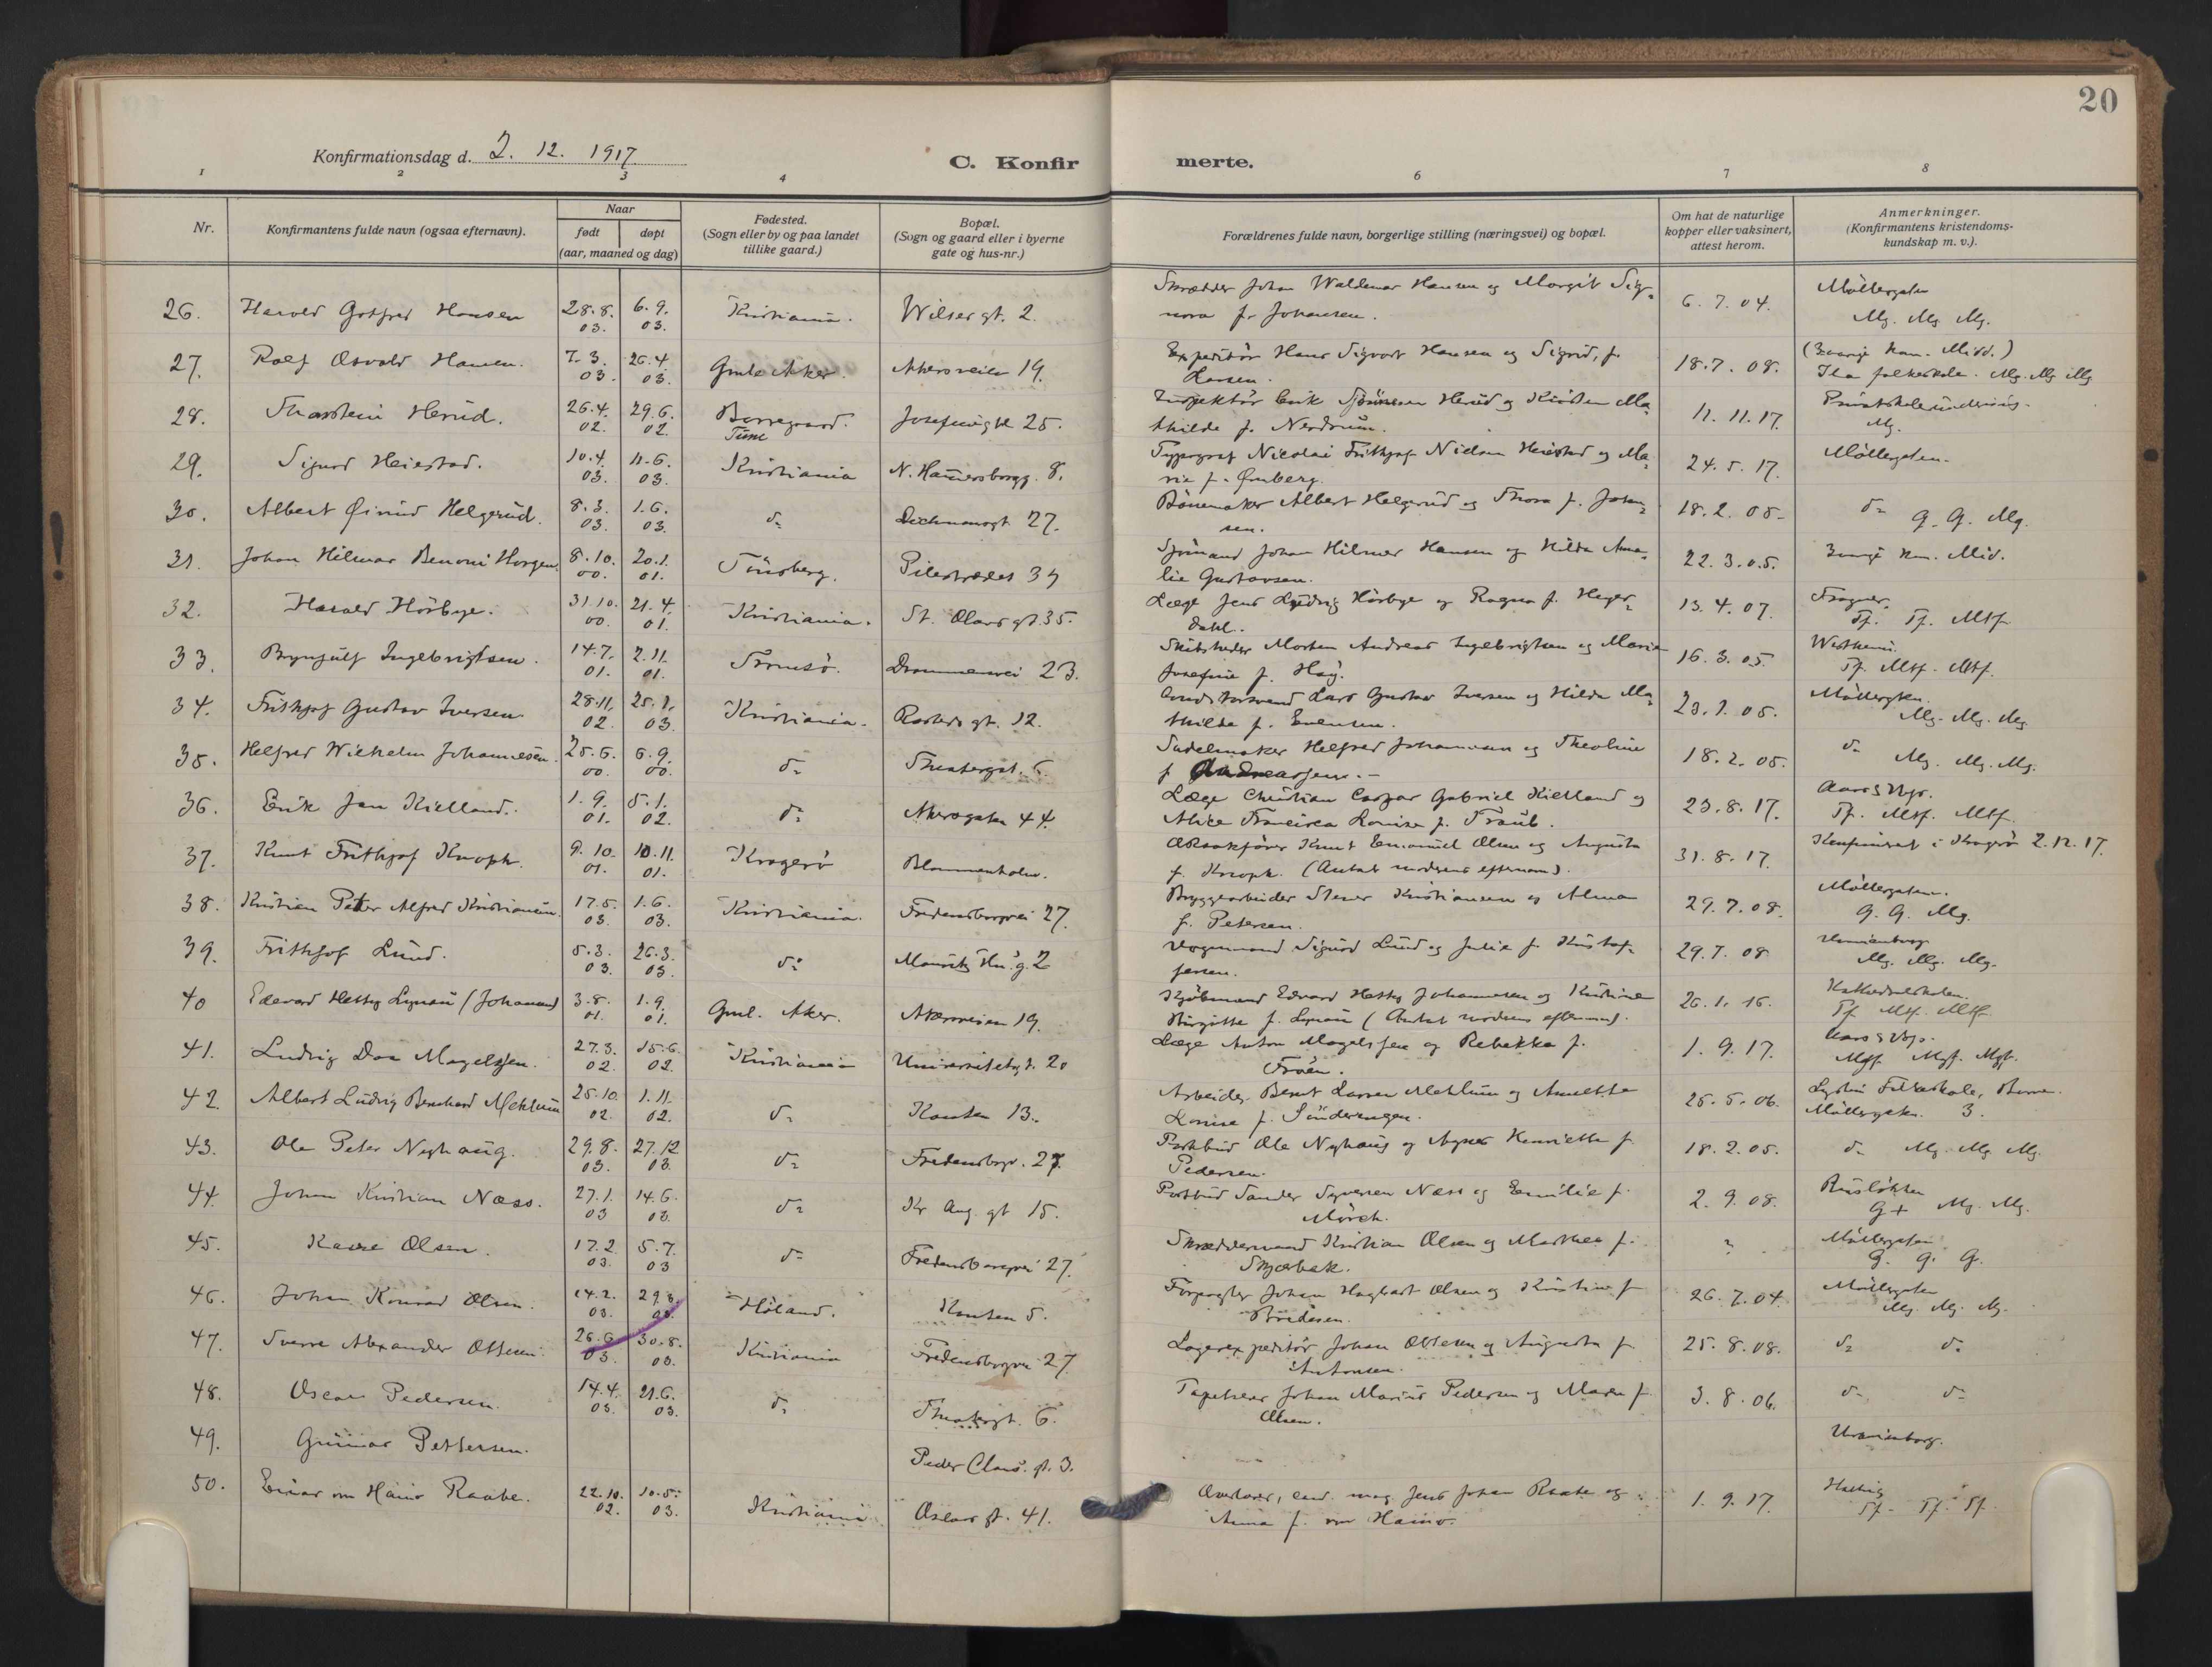 20
Konfirmationsdag d. 2. 12. 1917
C. Konfir merte.
1 2 3 4 6 7 8
Nr.
Konfirmantens fulde navn (ogsaa efternavn).
Naar
født døpt
(aar, maaned og dag)
Fødested.
(Sogn eller by og paa landet
tillike gaard.)
Bopæl.
(Sogn og gaard eller i byerne
gate og hus-nr.)
Forældrenes fulde navn, borgerlige stilling (næringsvei) og bopæl.
Om hat de naturlige
kopper eller vaksinert,
attest herom.
Anmerkninger.
(Konfirmantens kristendoms-
kundskap m. v.).
26. Harald Gotfred Hansen 28.8. 6.9. Kristiania. Wilses gt. 2. Skrædder Johan Waldemar Hansen og Margit Sig- 6.7.04. Møllergaten
03. 03. nora f. Johansen. Mg. Mg. Mg.
27. Rolf Osvald Hansen. 7.3. 26.4. Gmle Aker. Akersveien 19. Expeditør Hans Sigvart Hansen og Sigrid, f. 18.7.08.
03. 03. Larsen. Ila folkeskole. Mg. Mg. Mg
28. Thorstein Herud. 26.4. 29.6. Borregaard. Josefinegt 25. Inspektør Erik Herud og Kirsten Ma- 11.11.17.
02. 02. Tune thilde f. Nerdrum. Mg.
29. Sigurd Heiestad. 10.4. 11.6. Kristiania N. Hammersborgg. 8. Typograf Nicolai Frithjof Nielsen Heiestad og Ma- 24.5.17. Møllergaten.
03. 03. rie f. Ømberg.
30. Albert Øivind Helgerud. 8.3. 1.6. do Deichmansgt 27. Albert Helgerud og Thora f. Johan- 18.2.05. do G. G. Mg.
03. 03. sen.
31. Johan Hilmar Benoni Horgen. 8.10. 20.1. Tønsberg. Pilestrædet 34 Sjømand Johan Hilmer Hansen og Hilda Ama- 22.3.05.
00. 01. lie Gustavsen.
32. Harald Hørbye. 31.10. 21.4. Kristiania. St. Olavs gt. 35. Læge Jens Ludvig Hørbye og Ragna f. Heyer- 13.4.07. Frogner.
00. 01. dahl. Tf. Tf. Mtf.
33. Brynjulf Ingebrigtsen. 14.7. 2.11. Tromsø. Drammensvei 23. Skibsreder Morten Andreas Ingebrigtsen og Marie 16.3.05. Westheim.
01. 01. Josefine f. Tf. Mtf. Mtf.
34. Frithjof Gustav Iversen 28.11. 25.1. Kristiania. Rosteds gt. 12. Lars Gustav Iversen og Hilda Ma- 23.1.05. Møllergaten.
02. 03. thilde f. Evensen. Mg. Mg. Mg
35. Helfred Wilhelm Johannesen. 25.6. 6.9. do Theatergt. 6. Sadelmaker Helfred Johannesen og Theoline 18.2.05. do Mg. Mg. Mg.
00. 00. f. Andreassen.
36. Erik Jan Kielland. 1.9. 5.1. do Akersgaten 44. Læge Christian Caspar Gabriel Kielland og 23.8.17. Aars & Voss.
01. 02. Alice Francisca Louise f. Traub. Tf. Mtf. Mtf.
37. Knut Frithjof Knoph. 9.10. 10.11. Kragerø Blommenholm. Knut Emanuel Olsen og Augusta 31.8.17. Konfirmeret i Kragerø 2.12.17.
01. 01. f. Knoph. (Antat moderens efternavn).
38. Kristian Peter Alfred Kristiansen. 17.5. 1.6. Kristiania. Fredensborgvei 27. Bryggearbeider Kristiansen og Alma 29.7.08. Møllergaten.
03. 03. f. Petersen. G. G. Mg.
39. Frithjof Lund. 5.3. 26.3. do Mauritz Hn. g. 2 Vognmand Sigurd Lund og Julie f. Kristof- 29.7.08 Uranienborg
03. 03. fersen. Mg. Mg. Mg.
40 Edevard Hettsg Lynau (Johannesen) 3.8. 1.9. Gml. Aker. Akersveien 19. Kjøbmand Edvard Johannesen og Kristine 26.1.16. Kathedralskolen.
01. 01. Birgitte f. Lynau (Antat moderens efternavn). Tf. Mtf. Mtf.
41. Ludvig Daa Magelssen. 27.3. 15.6. Kristiania Universitetsgt. 20 Læge Anton Magelssen og Rebekka f. 1.9.17. Aars & Voss.
02. 02. Frøen. Mgf. Mgf. Mgf.
42. Albert Ludvig Bernhard Mehlum 25.10. 1.11. do Hausten 13. Arbeider Bernt Larsen Mehlum og Annette 25.5.06. Folkeskole, Borre.
02. 02. Lovise f. Møllergaten. 3.
43. Ole Peter Nyhaug. 29.8. 27.12 do Fredensborgv. 27. Postbud Ole Nyhaug og Agnes Henriette f. 18.2.05. do Mg. Mg. Mg.
03. 03. Pedersen.
44. Johan Kristian Næss. 27.1. 14.6. do Kr. Aug. gt 15. Postbud Sander Syversen Næss og Emilie f. 2.9.08. Ruseløkken
03 03. Mørch. G+ Mg. Mg.
45. Kaare Olsen. 17.2. 5.7. do Fredensborgvei 27. Skræddersvend Kristian Olsen og Marthea f. ? Møllergaten
03. 03 Skjærbæk. G. G. G.
46. Johan Konrad Olsen. 14.2. 29.3. Høland. 5. Forpagter Johan Hagbart Olsen og Kristine f. 26.7.04. Møllergaten
03. 03. Mg. Mg. Mg.
47. Sverre Alexander Ottesen. 26.6. 30.8. Kristiania Fredensborgvei 27. Lagerexpeditør Johan Ottesen og Augusta f. 25.8.08. do do
03. 03. Antonsen.
48. Oscar Pedersen. 14.4. 21.6. do Theatergt. 6. Tapetserer Johan Marius Pedersen og Maren f. 3.8.06. do do
03. 03. Olsen.
49. Gunnar Pettersen. Peder Claus. gt. 3. Uranienborg.
50. Einar von Hanno Raabe. 22.10. 10.5. Kristiania Oscars gt. 41. Overlærer, cand. mag. Jens Johan Raabe og 1.9.17.
02. 03. Anna f. von Hanno. Tf. Tf. Tf.